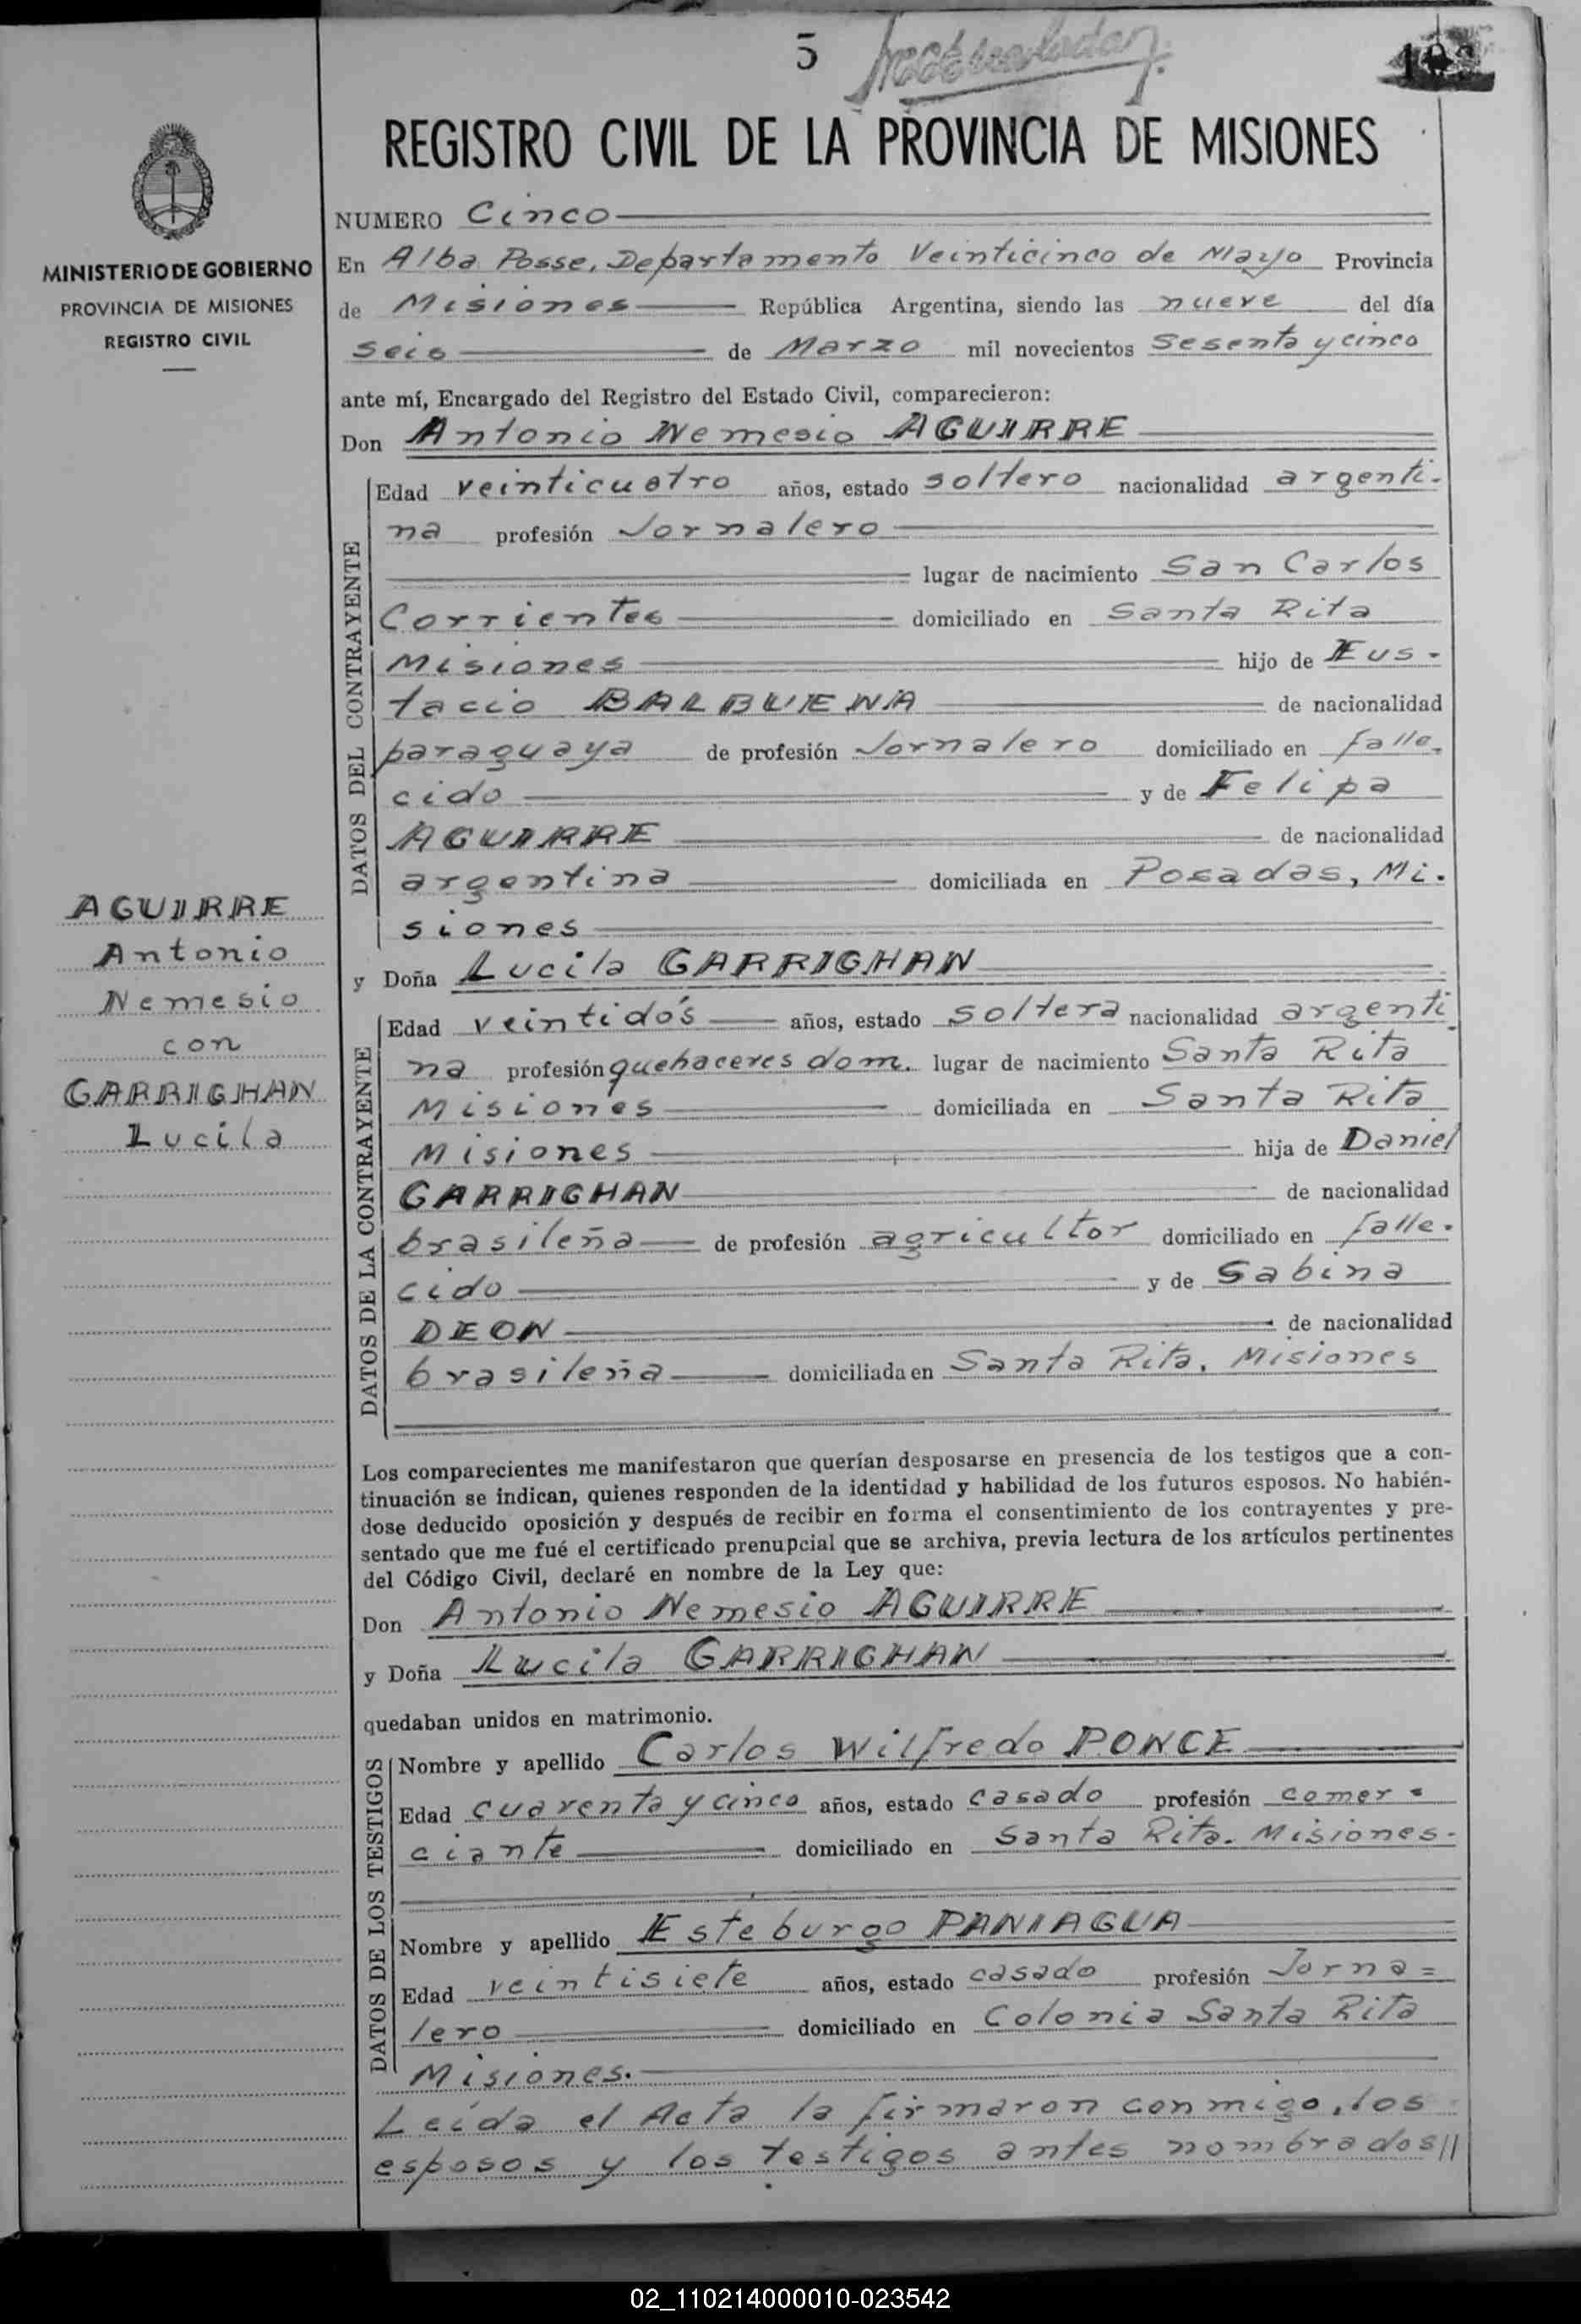 5
REGISTRO CIVIL DE LA PROVINCIA DE MISIONES
MINISTERIO DE GOBIERNO
PROVINCIA DE MISIONES
REGISTRO CIVIL
AGUIRRE
Antonio
Nemesio
con
GARRIGHAN
Lucila
NUMERO Cinco
En Alba Posse, Departamento Veinticinco de Mayo Provincia
de Misiones República Argentina, siendo las nueve del día
seis de Marzo mil novecientos sesenta y cinco
ante mí, Encargado del Registro del Estado Civil, comparecieron:
Don Antonio Nemesio AGUIRRE
DATOS DEL CONTRAYENTE
Edad veinticuatro años, estado soltero nacionalidad argenti-
na profesión Jornalero
lugar de nacimiento San Carlos
Corrientes domiciliado en Santa Rita
Misiones hijo de Eus-
tacio BALBUENA de nacionalidad
paraguaya de profesión Jornalero domiciliado en falle-
cido y de Felipa
AGUIRRE de nacionalidad
argentina domiciliada en Posadas, Mi-
siones
y Doña Lucila GARRIGHAN
DATOS DE LA CONTRAYENTE
Edad veintidós años, estado soltera nacionalidad argenti
na profesión quehaceres dom. lugar de nacimiento Santa Rita
Misiones domiciliada en Santa Rita
Misiones hija de Daniel
GARRIGHAN de nacionalidad
brasileña de profesión agricultor domiciliado en falle-
cido y de Sabina
DEON de nacionalidad
brasileña domiciliada en Santa Rita, Misiones
Los comparecientes me manifestaron que querían desposarse en presencia de los testigos que a con-
tinuación se indican, quienes responden de la identidad y habilidad de los futuros esposos. No habién-
dose deducido oposición y después de recibir en forma el consentimiento de los contrayentes y pre-
sentado que me fué el certificado prenupcial que se archiva, previa lectura de los artículos pertinentes
del Código Civil, declaré en nombre de la Ley que:
Don Antonio Nemesio AGUIRRE
y Doña Lucila GARRIGHAN
quedaban unidos en matrimonio.
DATOS DE LOS TESTIGOS
Nombre y apellido Carlos Wilfredo PONCE
Edad cuarenta y cinco años, estado casado profesión comer-
ciante domiciliado en Santa Rita. Misiones.
Nombre y apellido Esteburgo PANIAGUA
Edad veintisiete años, estado casado profesión Jorna=
lero domiciliado en Colonia Santa Rita
Misiones.
Leída el Acta la firmaron conmigo, los
esposos y los testigos antes nombrados//
02_110214000010-023542